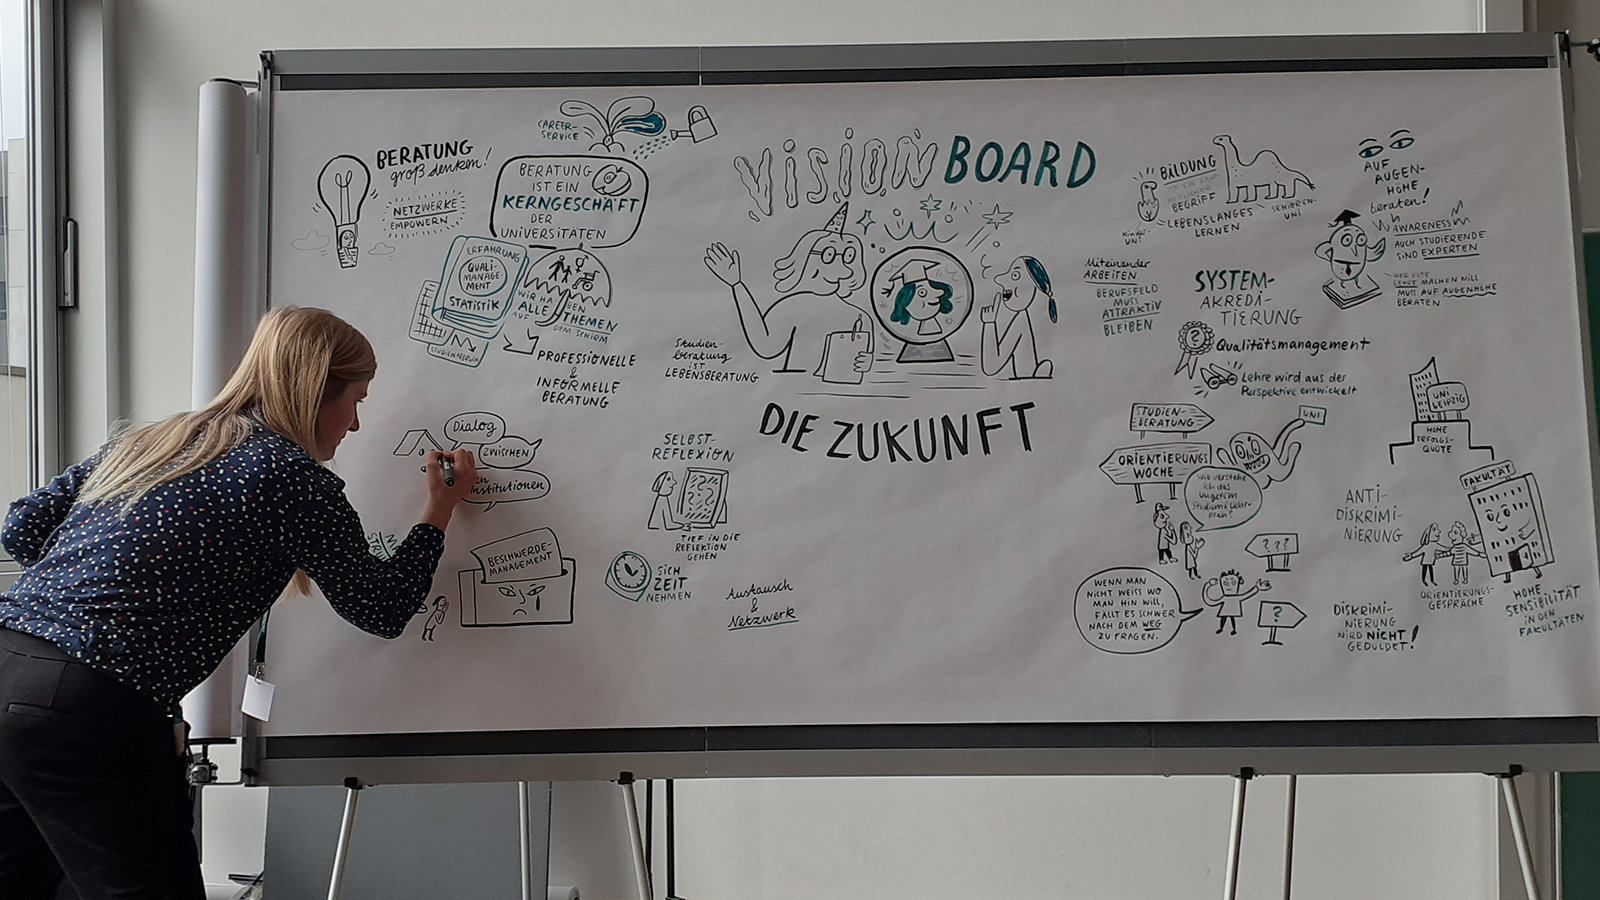 CAREER-
SERVICE
BERATUNG
groß denken!
NETZWERKE
EMPOWERN
BERATUNG
IST EIN
KERNGESCHÄFT
DER
UNIVERSITÄTEN
ERFAHRUNG
QUALI-
MANAGE-
MENT
STATISTIK
WIR HA BEN
ALLE THEMEN
AUF DEM SCHIRM
PROFESSIONELLE
&
INFORMELLE
BERATUNG
Dialog
ZWISCHEN
Institutionen
BESCHWERDE-
MANAGEMENT
VISION BOARD
DIE ZUKUNFT
Studien-
beratung
IST
LEBENSBERATUNG
SELBST-
REFLEXION
TIEF IN DIE
REFLEKTION
GEHEN
SICH
ZEIT
NEHMEN
Austausch
&
Netzwerk
BILDUNG
BEGRIFF
LEBENSLANGES
LERNEN
SENIOREN-
UNI
Kinder-
UNI
Miteinander
ARBEITEN
BERUFSFELD
MUSS
ATTRAKTIV
BLEIBEN
AUF
AUGEN-
HÖHE
beraten!
AWARENESS
AUCH STUDIERENDE
SIND EXPERTEN
WER GUTE
LEHRE MACHEN WILL
MUSS AUF AUGENHÖHE
BERATEN
SYSTEM-
AKREDI-
TIERUNG
Qualitätsmanagement
Lehre wird aus der
Perspektive entwickelt
STUDIEN-
BERATUNG
UNI
ORIENTIERUNGS
WOCHE
Wie verstehe
ich das
???
?
WENN MAN
NICHT WEISS WO
MAN HIN WILL,
FÄLLT ES SCHWER
NACH DEM WEG
ZU FRAGEN.
UNI
LEIPZIG
HOHE
ERFOLGS-
QUOTE
ANTI-
DISKRIMI-
NIERUNG
FAKULTÄT
ORIENTIERUNGS-
GESPRÄCHE
DISKRIMI-
NIERUNG
WIRD NICHT
GEDULDET!
HOHE
SENSIBILITÄT
IN DEN
FAKULTÄTEN